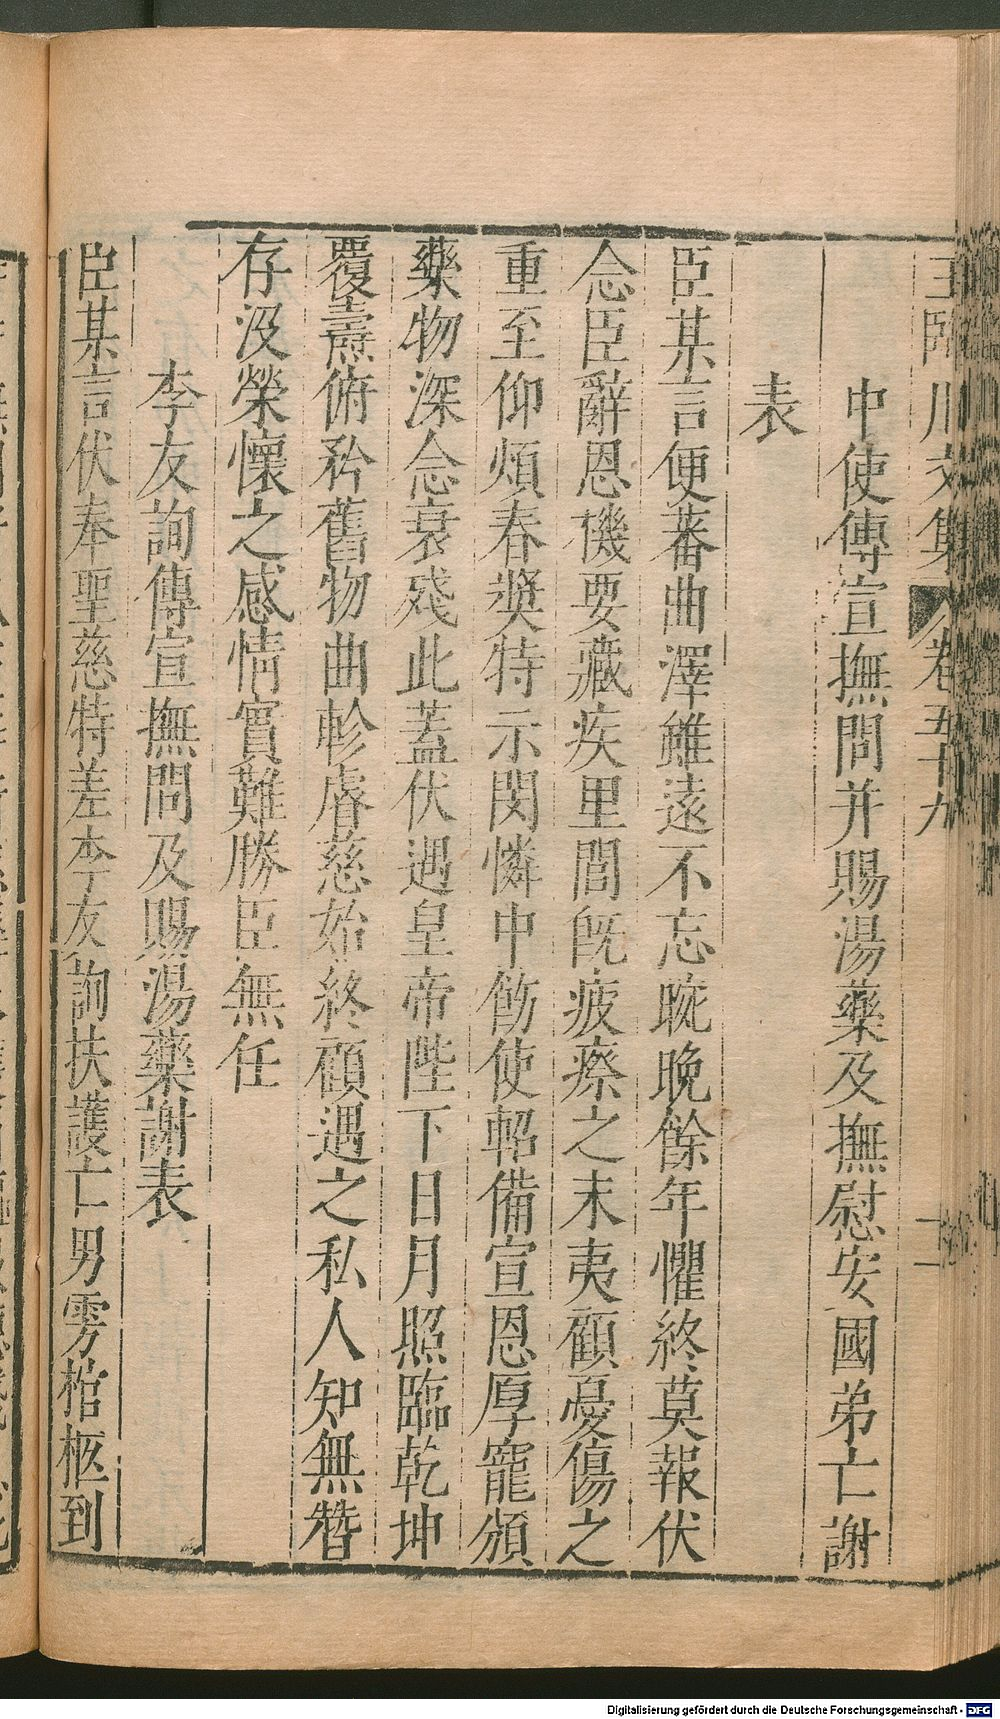 王臨川文集 卷五十九
中使傳宣撫問并賜湯藥及撫慰安國弟亡謝
表
臣某言便蕃曲澤雖遠不忘晼晚餘年懼終莫報伏
念臣辭恩機要藏疾里閭旣疲瘵之未夷顧憂傷之
重至仰煩眷奬特示閔憐申飭使軺備宣恩厚寵頒
藥物深念衰殘此蓋伏遇皇帝陛下日月照臨乾坤
覆燾俯矜舊物曲軫睿慈始終顧遇之私人知無替
存没榮懷之感情實難勝臣無任
李友詢傳宣撫問及賜湯藥謝表
臣某言伏奉聖慈特差李友詢扶護亡男雱棺柩到
Digitalisierung gefördert durch die Deutsche Forschungsgemeinschaft - DFG